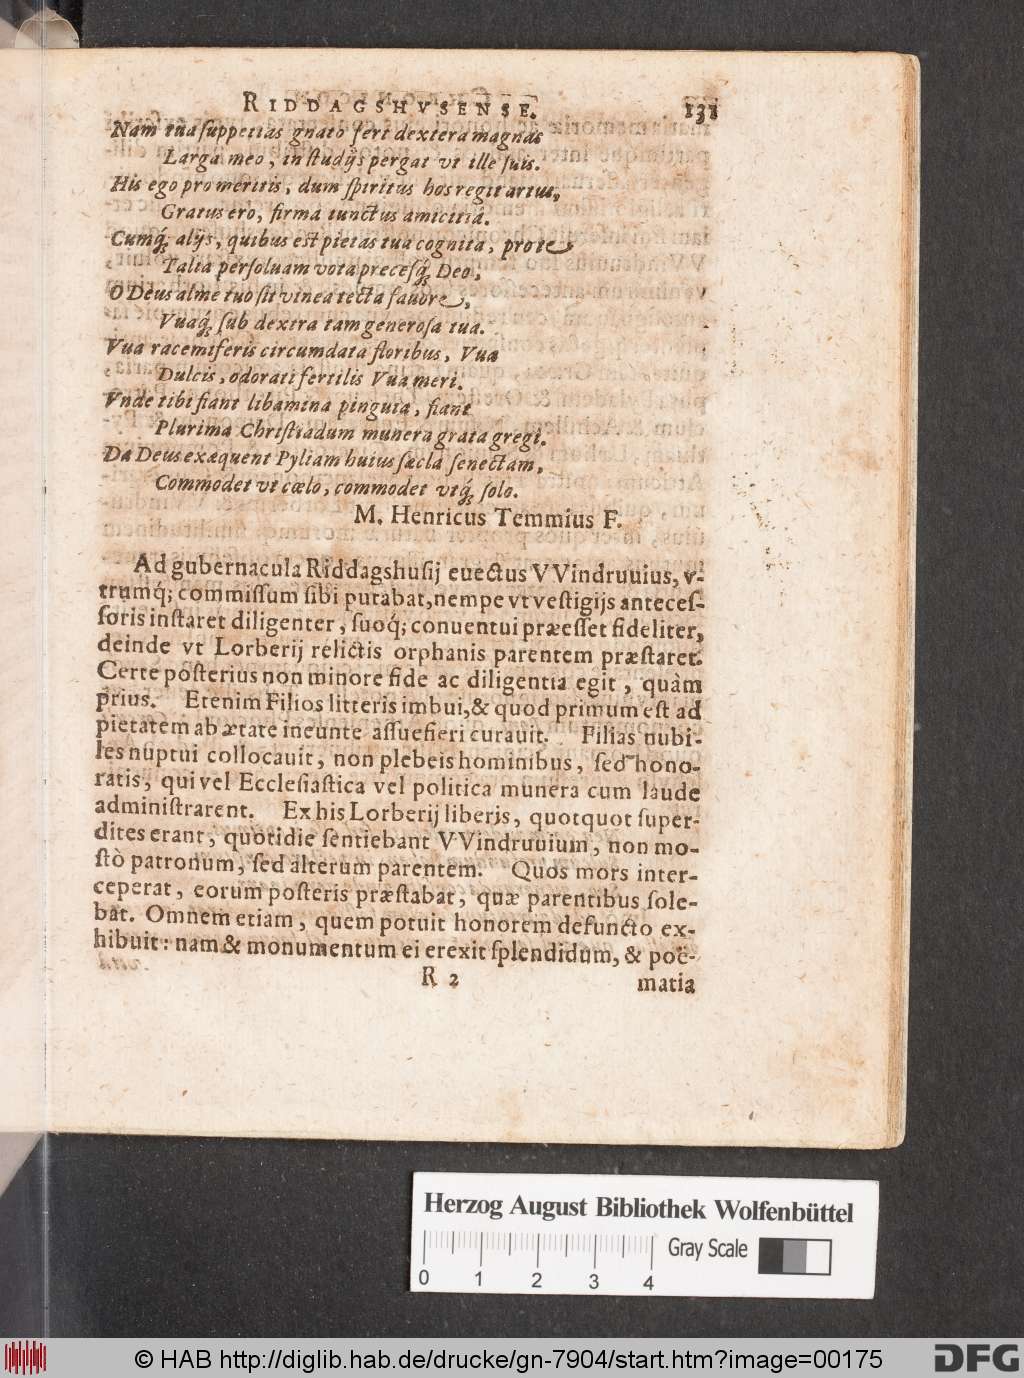 RIDDAGSHVSENSE. 131
Nam tua suppetias gnato fert dextera magnas
Larga meo, in studijs pergat vt ille suis.
His ego pro meritis, dum spiritus hos regit artus,
Gratus ero, firma iunctus amicitia.
Cumq́; alijs, quibus est pietas tua cognita, pro te
Talia persoluam vota precesq́; Deo,
O Deus alme tuo sit vinea tecta favore,
Vuaq́; sub dextra tam generosa tua.
Vua racemiferis circumdata floribus, Vua
Dulcis, odorati fertilis Vua meri.
Vnde tibi fiant libamina pinguia, fiant
Plurima Christiadum munera grata gregi.
Da Deus exæquent Pyliam huius sæcla senectam,
Commodet vt cœlo, commodet vtq́; solo.
M. Henricus Temmius F.
Ad gubernacula Riddagshusij euectus VVindruuius, v-
trumq́; commissum sibi putabat, nempe vt vestigijs anteces-
soris instaret diligenter, suoq́; conuentui præesset fideliter,
deinde vt Lorberij relictis orphanis parentem præstaret.
Certe posterius non minore fide ac diligentia egit, quàm
prius. Etenim Filios litteris imbui, & quod primum est ad
pietatem ab ætate ineunte assuefieri curauit. Filias nubi-
les nuptui collocauit, non plebeis hominibus, sed hono-
ratis, qui vel Ecclesiastica vel politica munera cum laude
administrarent. Ex his Lorberij liberis, quotquot super-
dites erant, quotidie sentiebant VVindruuium, non mo-
stò patronum, sed alterum parentem. Quos mors inter-
ceperat, eorum posteris præstabat, quæ parentibus sole-
bat. Omnem etiam, quem potuit honorem defuncto ex-
hibuit: nam & monumentum ei erexit splendidum, & poë-
R 2 matia
Herzog August Bibliothek Wolfenbüttel
Gray Scale
0 1 2 3 4
© HAB http://diglib.hab.de/drucke/gn-7904/start.htm?image=00175
DFG